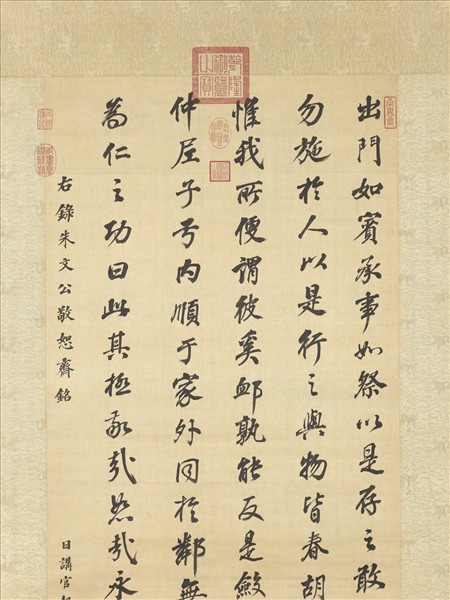 乾隆御覽之寶
出門如賓承事如祭以是存之敢
勿施於人以是行之與物皆春胡
惟我所便謂彼奚卹孰能反是斂
仲尼子弓內順于家外同於鄰無
為仁之功曰此其極敬哉恕哉永
右錄朱文公敬恕齋銘
日講官起